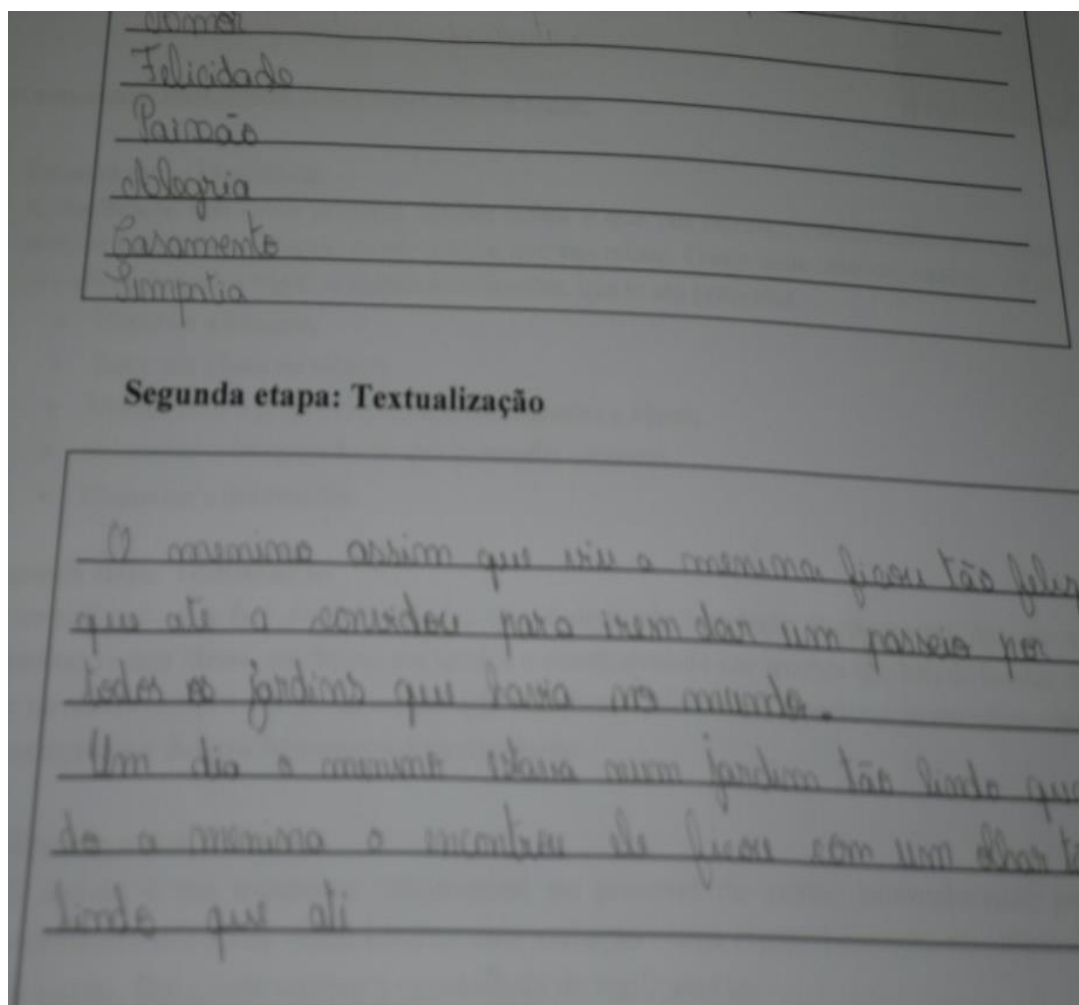 Amor
Felicidade
Paixão
Alegria
Casamento
Simpatia
Segunda etapa: Textualização
O menino assim que viu a menina ficou tão feliz
que até a convidou para irem dar um passeio por
todos os jardins que havia no mundo.
Um dia o menino estava num jardim tão lindo qua
do a menina o encontrou ele ficou com um olhar tã
lindo que ati